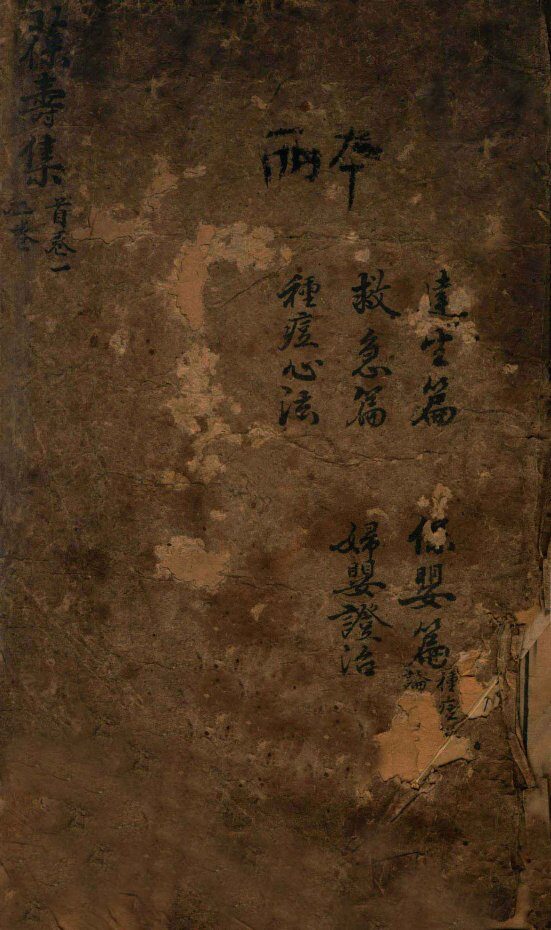 兩
達生篇
救急篇
種痘心法
保嬰篇
種痘
論
婦嬰證治
葆壽集
首卷一
卷